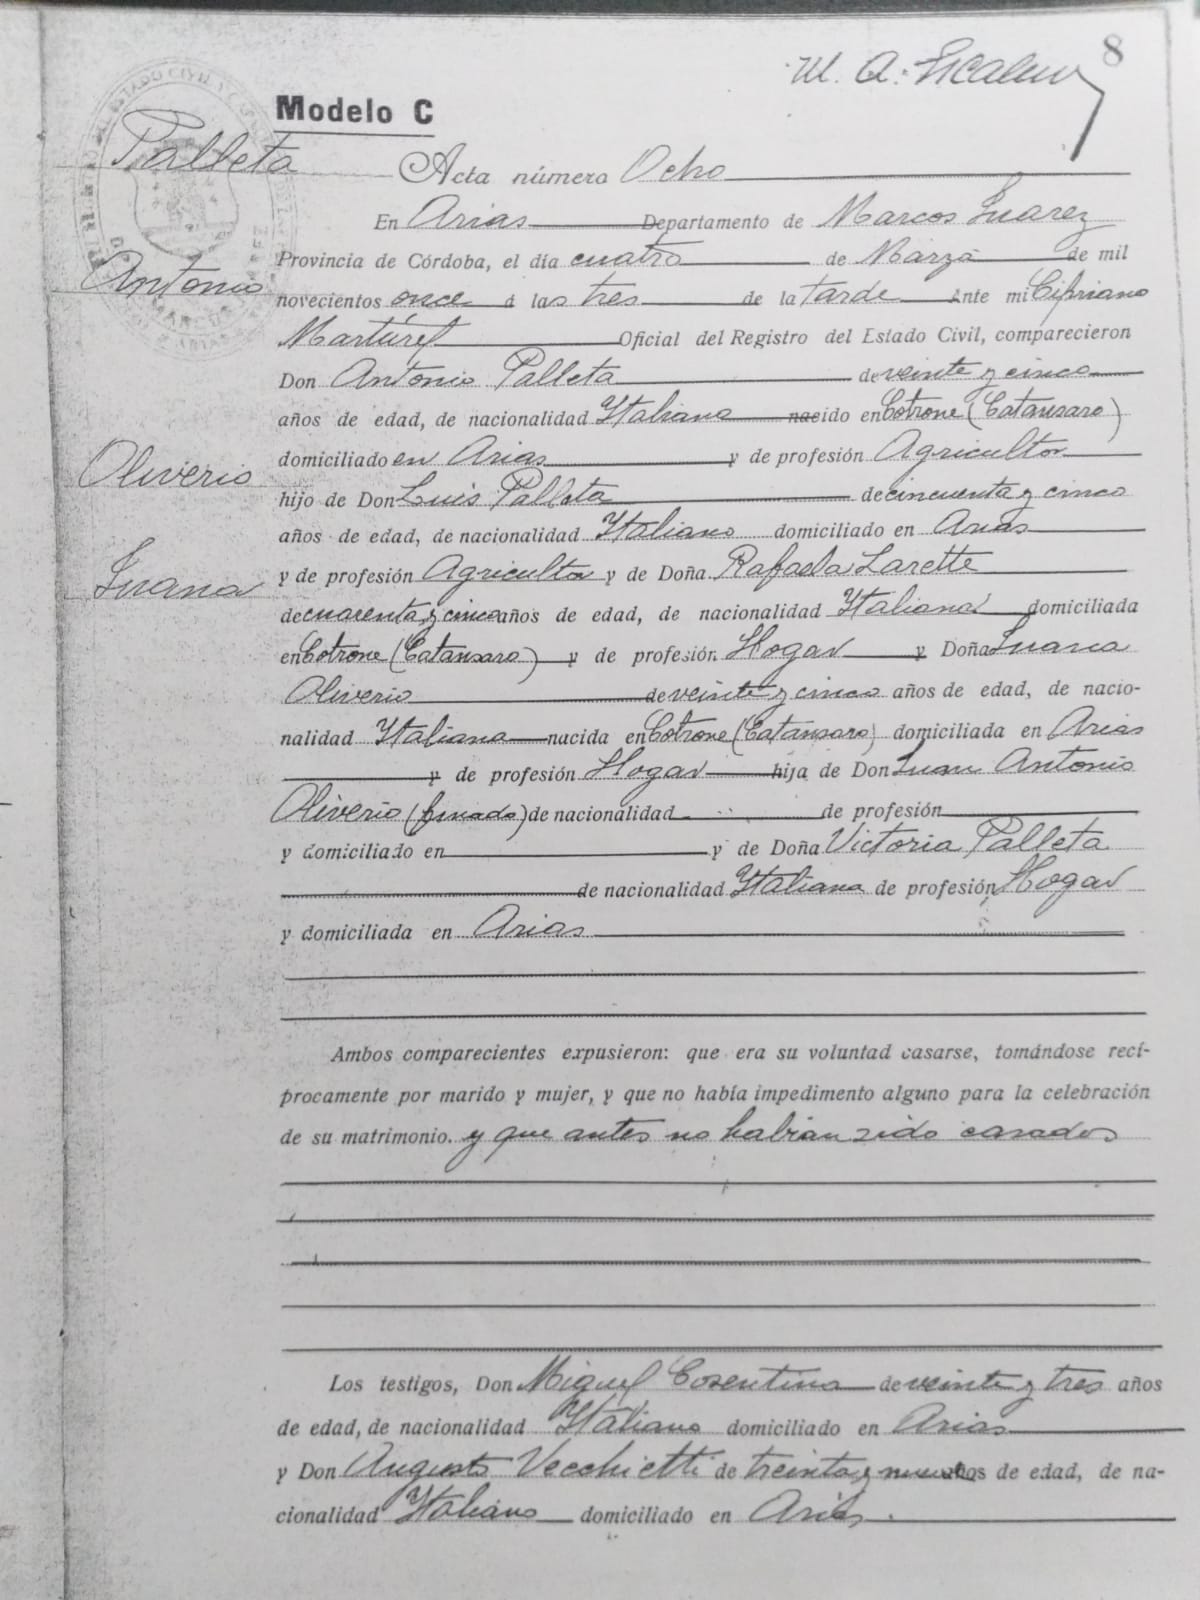 8
Modelo C
Palleta
Acta número Ocho
En Arias Departamento de Marcos Juarez
Provincia de Córdoba, el día cuatro de Marzo de mil
Antonio
novecientos once á las tres de la tarde Ante mi Cipriano
Oficial del Registro del Estado Civil, comparecieron
Don Antonio Palleta de veinte y cinco
años de edad, de nacionalidad Italiana nacido en Cotrone (Catansaro)
domiciliado en Arias y de profesión Agricultor
Oliverio
hijo de Don Luis Palleta de cincuenta y cinco
años de edad, de nacionalidad Italiano domiciliado en Arias
Juana
y de profesión Agricultor y de Doña Rafaela Larette
de cuarenta y cinco años de edad, de nacionalidad Italiana domiciliada
en Cotrone (Catansaro) y de profesión Hogar y Doña Juana
Oliverio de veinte y cinco años de edad, de nacio-
nalidad Italiana nacida en Cotrone (Catansaro) domiciliada en Arias
y de profesión Hogar hija de Don Juan Antonio
Oliverio (finado) de nacionalidad de profesión
y domiciliado en y de Doña Victoria Palleta
de nacionalidad Italiana de profesión Hogar
y domiciliada en Arias
Ambos comparecientes expusieron: que era su voluntad casarse, tomándose recí-
procamente por marido y mujer, y que no había impedimento alguno para la celebración
de su matrimonio. y que antes no habian sido casados
Los testigos, Don Miguel Cosentino de veinte y tres años
de edad, de nacionalidad Italiano domiciliado en Arias
y Don Augusto Vecchietti de treinta y nueve años de edad, de na-
cionalidad Italiano domiciliado en Arias.